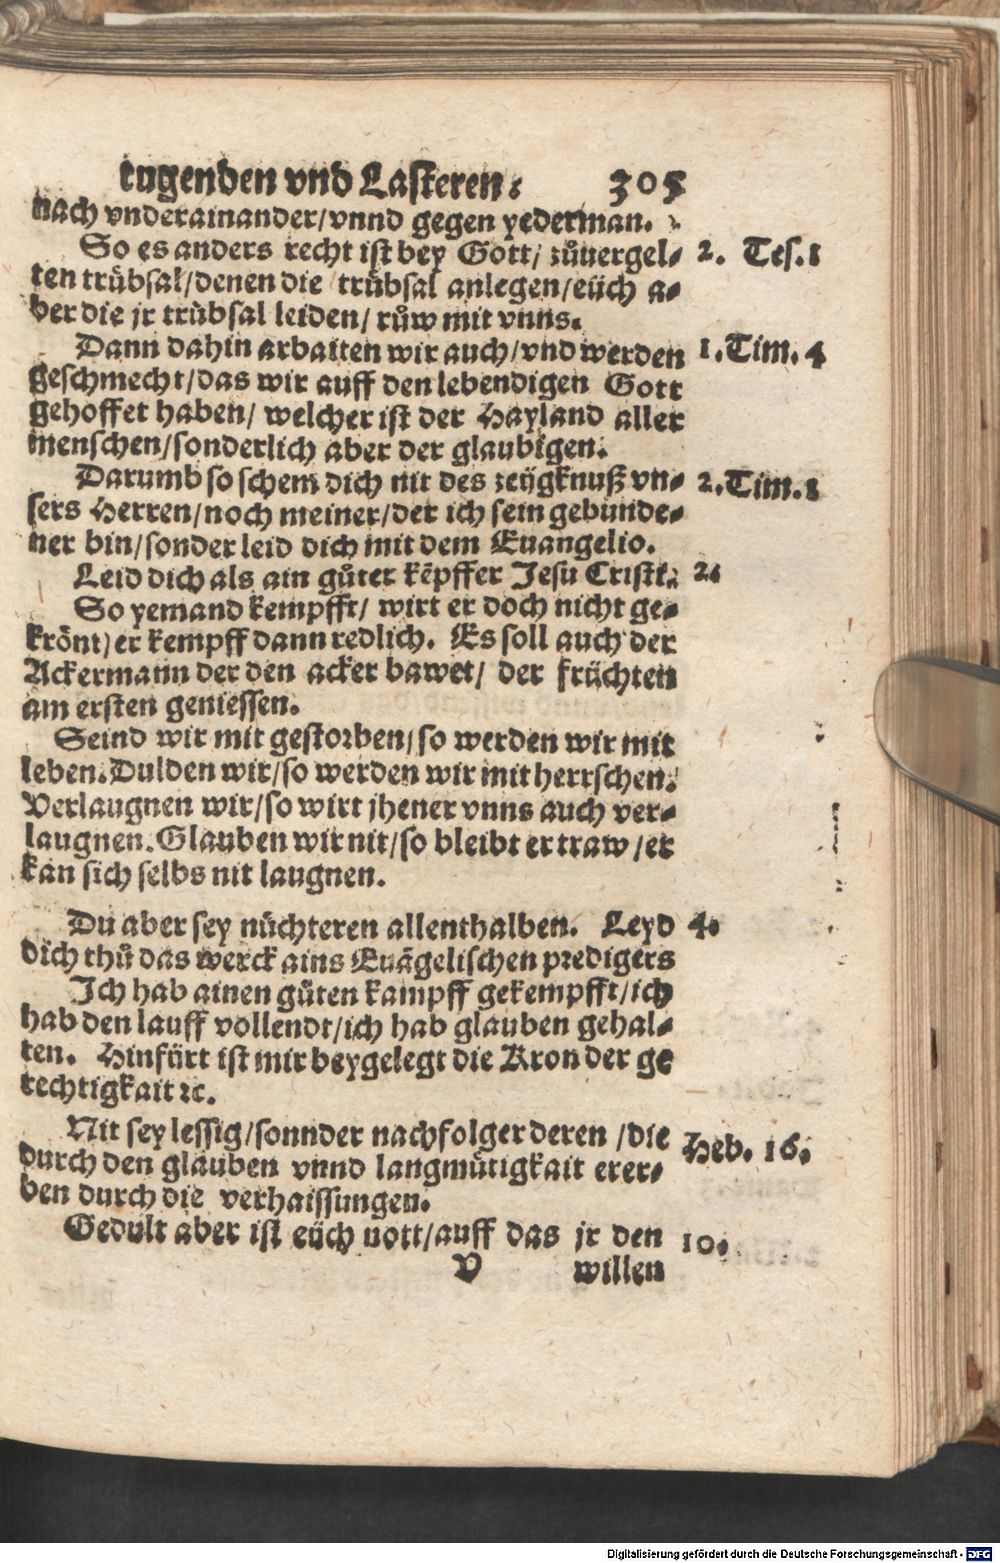 tugenden vnd Lasteren. 305
nach vnderainander/vnnd gegen yederman.
So es anders recht ist bey Gott/ zůuergel- 2. Tes. 1
ten trůbsal/denen die trůbsal anlegen/eüch a-
ber die jr trůbsal leiden/ růw mit vnns.
Dann dahin arbaiten wir auch/vnd werden 1. Tim. 4
geschmecht/das wir auff den lebendigen Gott
gehoffet haben/ welcher ist der Hayland aller
menschen/sonderlich aber der glaubigen.
Darumb so schem dich nit des zeügknuß vn- 2. Tim. 1
sers Herren/noch meiner/der ich sein gebunde-
ner bin/sonder leid dich mit dem Euangelio.
Leid dich als ain gůter kẽpffer Jesu Cristi. 2.
So yemand kempfft/ wirt er doch nicht ge-
krönt/er kempff dann redlich. Es soll auch der
Ackermann der den acker bawet/ der früchten
am ersten geniessen.
Seind wir mit gestorben/so werden wir mit
leben. Dulden wir/so werden wir mit herrschen.
Verlaugnen wir/so wirt jhener vnns auch ver-
laugnen. Glauben wir nit/so bleibt er traw/er
kan sich selbs nit laugnen.
Du aber sey nůchteren allenthalben. Leyd 4.
dich thů das werck ains Euãgelischen predigers
Ich hab ainen gůten kampff gekempfft/ich
hab den lauff vollendt/ich hab glauben gehal-
ten. Hinfürt ist mir beygelegt die Kron der ge
rechtigkait ꝛc.
Nit sey lessig/sonnder nachfolger deren /die Heb. 16.
durch den glauben vnnd langmůtigkait erer-
ben durch die verhaissungen.
Gedult aber ist eüch nott/auff das jr den 10.
V willen
Digitalisierung gefördert durch die Deutsche Forschungsgemeinschaft - DFG